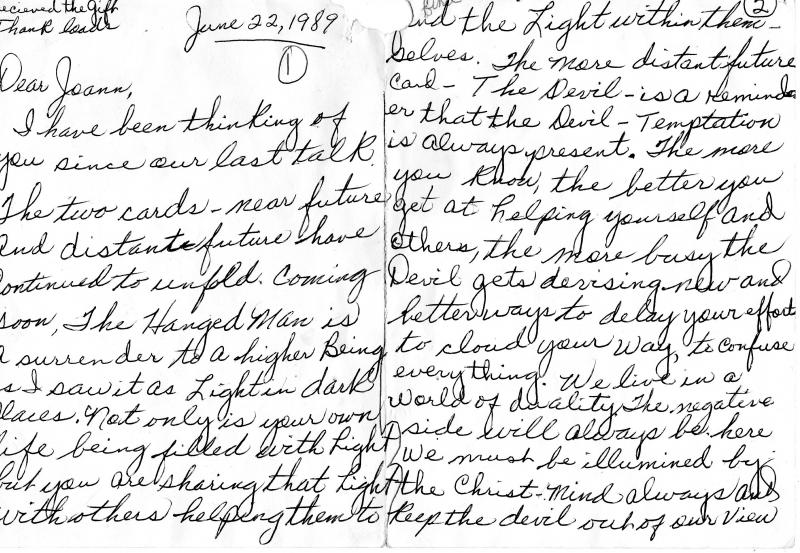 recieved the gift
Thank loads
June 22, 1989
1
Dear Joann,
I have been thinking of
you since our last talk.
The two cards - near future
and distant future have
continued to unfold. Coming
soon, The Hanged Man is
a surrender to a higher Being
as I saw it as Light in dark
places. Not only is your own
life being filled with Light
but you are sharing that Light
with others helping them to
2
find the Light within them-
selves. The more distant future
card - The Devil - is a remind
er that the Devil - Temptation
is always present. The more
you know, the better you
get at helping yourself and
others, the more busy the
Devil gets devising new and
better ways to delay your effort
to cloud your way, to confuse
everything. We live in a
world of duality. The negative
side will always be here
We must be illumined by
the Christ-Mind always and
keep the devil out of our view